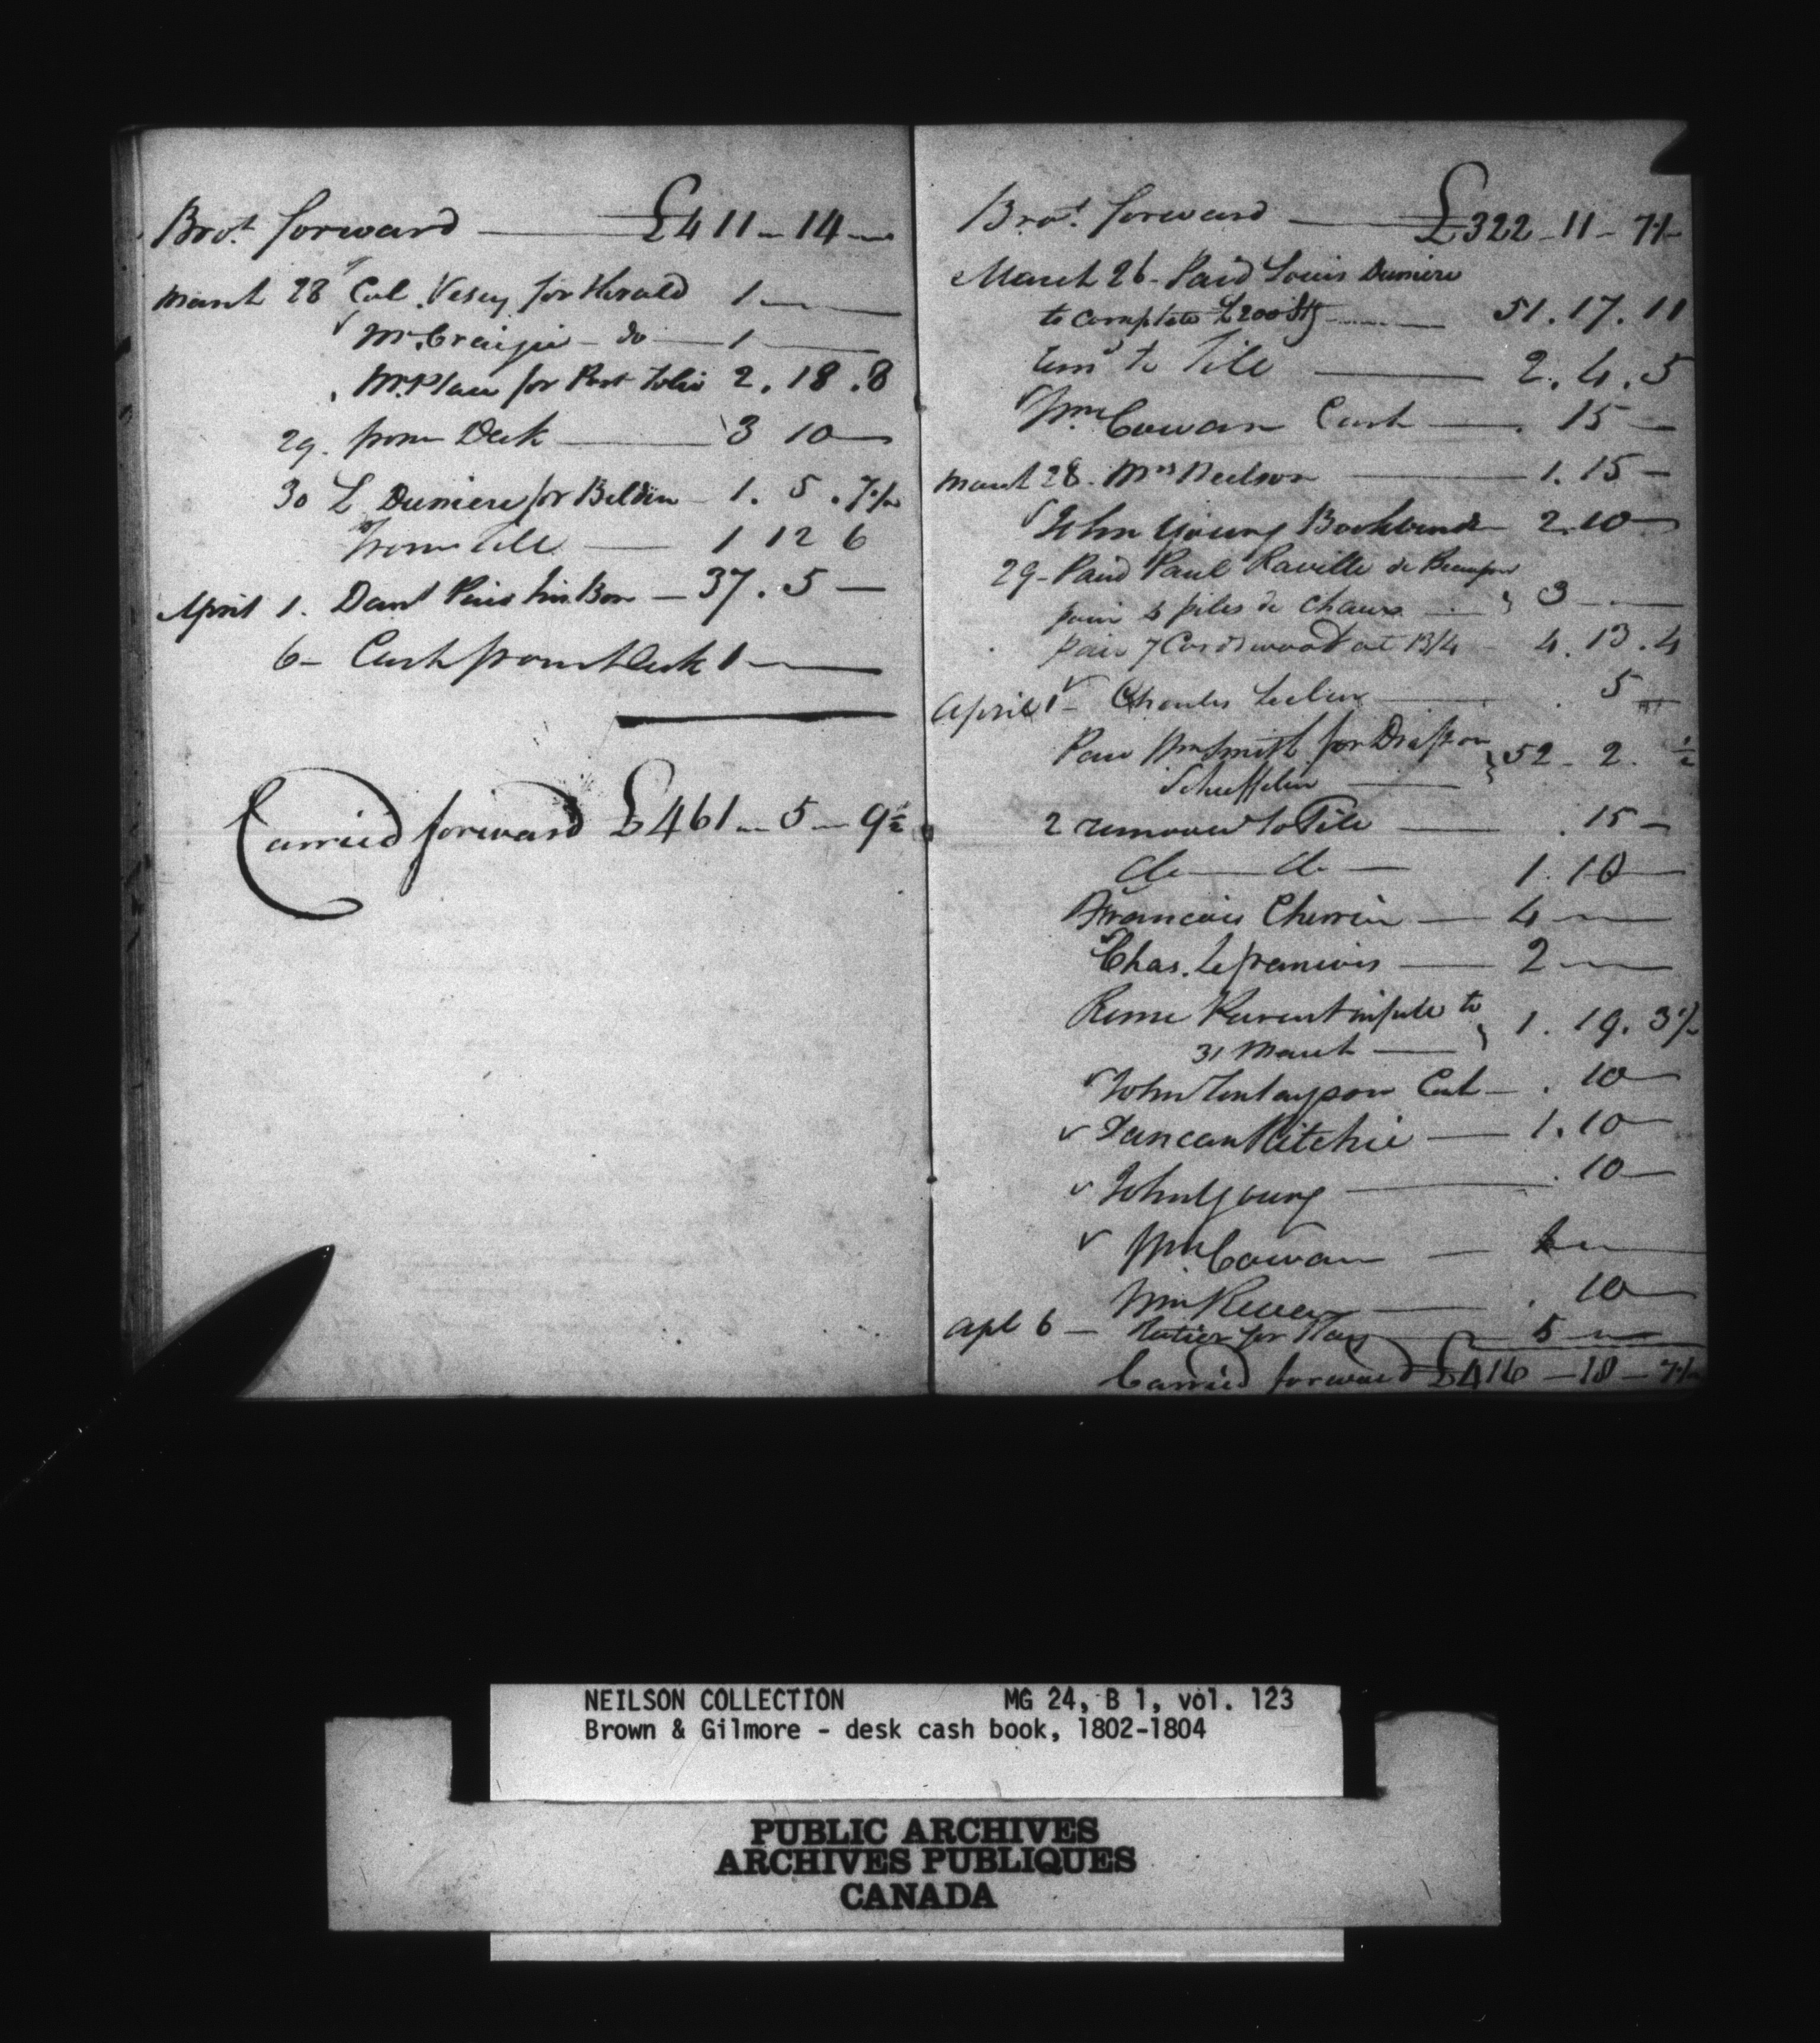 Brot. forward £411 - 14 -
March 28 Col. Vesey for Herald 1 -
Mr. Craigie - do - 1 -
Mr. Place for Port Folio 2. 18. 8
29. from Desk 3 10 -
30 L Duniere for Beldin 1. 5. 7½
From Till 1 12 6
April 1. Dant Pais his Bon - 37. 5 -
6 - Cash from Desk 1 -
Carried forward £461 - 5 - 9½
Brot. forward £322 - 11 - 7½
March 26 - Paid Louis Duniere
to complete £200 Stg 51. 17. 11
to Till 2. 4. 5
Wm. Cowan Cash . 15 -
March 28. Mrs Neilson 1. 15 -
John Young Bookbinder 2. 10 -
29 - Paid Paul Raville de Beauport
pour 6 piles de chaux 3 -
paid 7 Cords wood at 13/4 4. 13. 4
April 1 - Charles . 5 -
Paid Wm Smith for Draft on
Schieffelin 52 - 2. ½
2 removed to Till . 15 -
do - do - 1. 10 -
Francois Cherrin 4 -
Chas. Lefrancois 2 -
Parent in full to
31 March 1. 19. 3½
John Finlayson Cash - . 10 -
Duncan Ritchie 1. 10 -
John Young . 10 -
Wm Cowan
Wm . 10 -
Apl 6 - Ratier for Hay 5 -
Carried forward £416 - 18 - 7½
NEILSON COLLECTION MG 24, B 1, vol. 123
Brown & Gilmore - desk cash book, 1802-1804
PUBLIC ARCHIVES
ARCHIVES PUBLIQUES
CANADA